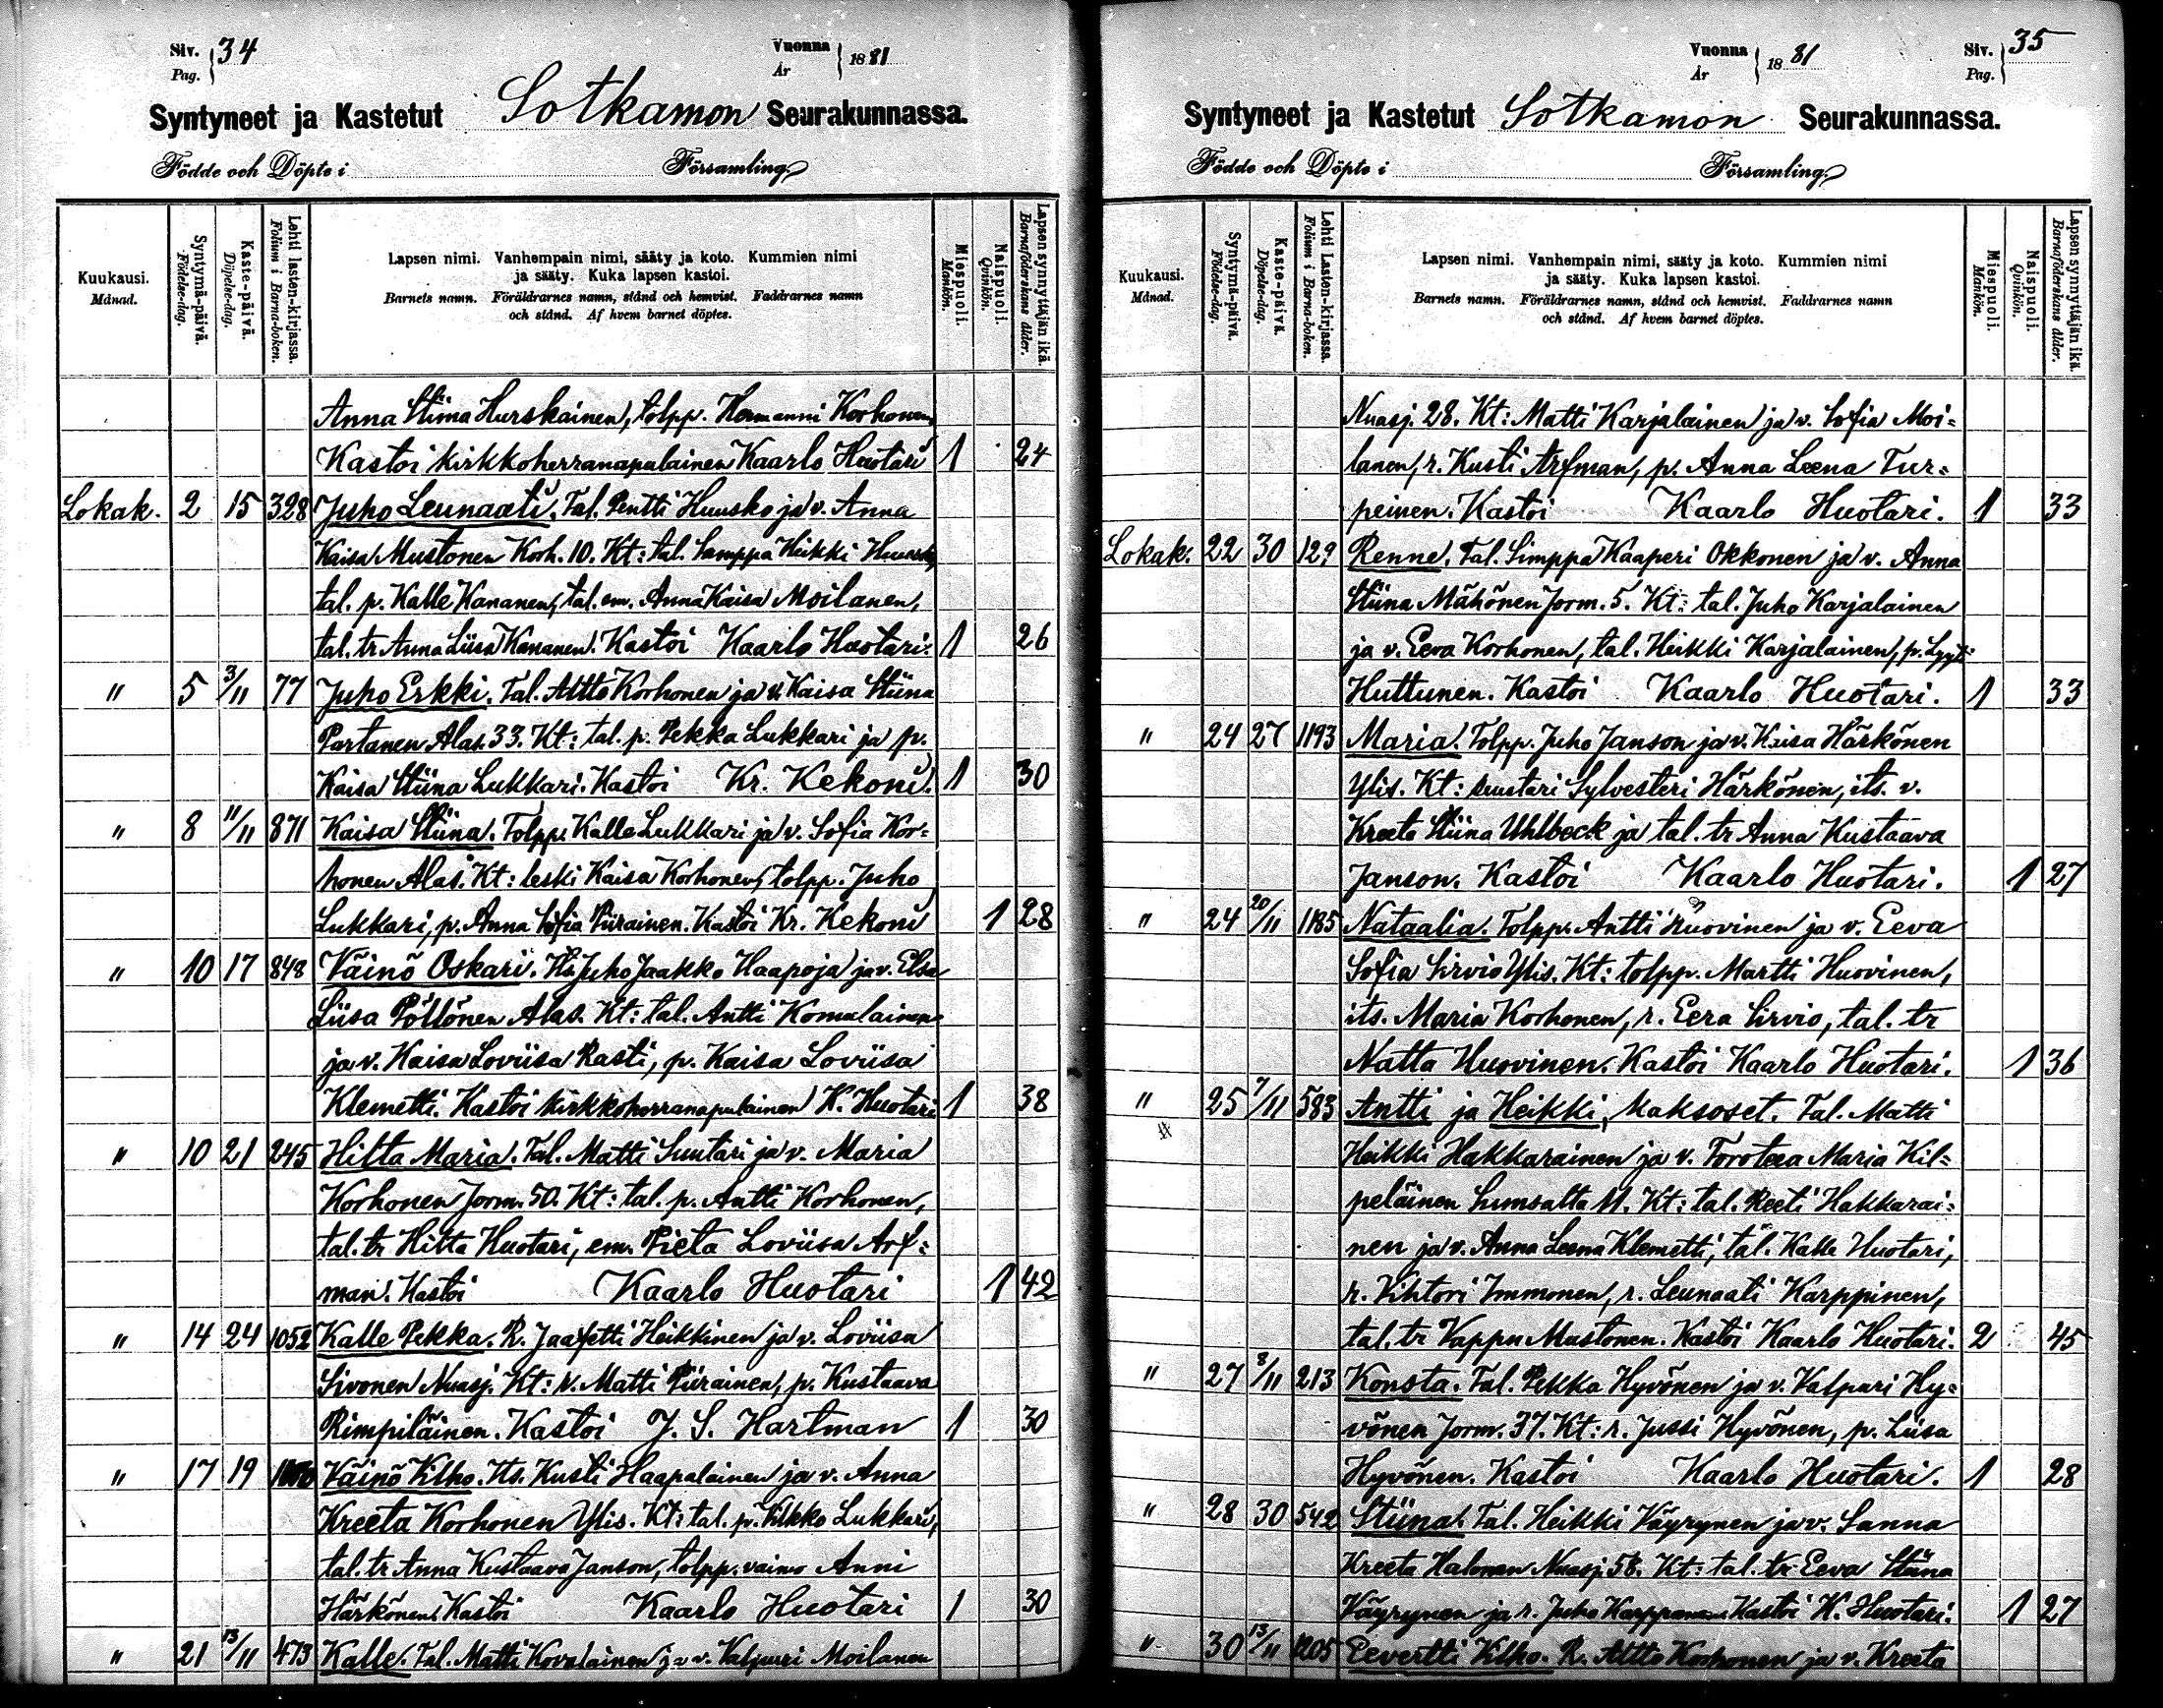 Siv. 34
Pag.
Vuonna 1881
År
Syntyneet ja Kastetut Sotkamon Seurakunnassa.
Födde och Döpte i Församling
Kuukausi.
Månad.
Syntymä-päivä.
Födelse-dag.
Kaste-päivä.
Döpelse-dag.
Lehti lasten-kirjassa.
Folium i Barna-boken.
Lapsen nimi. Vanhempain nimi, sääty ja koto. Kummien nimi
ja sääty. Kuka lapsen kastoi.
Barnets namn. Föräldrarnes namn, stånd och hemvist. Faddrarnes namn
och stånd. Af hvem barnet döptes.
Miespuoli.
Mankön.
Naispuoli.
Qvinkön.
Lapsen synnyttäjän ikä.
Barnaföderskans ålder.
Anna Stiina Hurskainen, tolpp. Hermanni Korhonen,
Kastoi kirkkoherranapulainen Kaarlo Huotari 1 24
Lokak. 2 15 328 Juho Leunaati. Tal. Pentti Huusko ja v. Anna
Kaisa Mustonen Korh. 10. Kt: tal. Samppa Heikki Huusko,
tal. p. Kalle Kananen, tal. em. Anna Kaisa Moilanen,
tal. tr Anna Liisa Kananen. Kastoi Kaarlo Huotari. 1 26
" 5 3/11 77 Juho Erkki. Tal. Altto Korhonen ja v. Kaisa Stiina
Partanen Alas. 33. Kt: tal. p. Pekka Lukkari ja p.
Kaisa Stiina Lukkari. Kastoi Kr. Kekoni. 1 30
" 8 11/11 871 Kaisa Stiina. Tolpp. Kalle Lukkari ja v. Sofia Kor=
honen Alas. Kt: leski Kaisa Korhonen, tolpp. Juho
Lukkari, p. Anna Sofia Piirainen. Kastoi Kr. Kekoni 1 28
" 10 17 848 Väinö Oskari. Its. Juho Jaakko Haapoja ja v. Elsa
Liisa Pöllönen Alas. Kt: tal. Antti Komulainen
ja v. Kaisa Loviisa Rasti, p. Kaisa Loviisa
Klemetti. Kastoi kirkkoherranapulainen K. Huotari 1 38
" 10 21 245 Hilta Maria. Tal. Matti Suutari ja v. Maria
Korhonen Jorm. 50. Kt: tal. p. Antti Korhonen,
tal. tr Hilta Huotari, em. Pieta Loviisa Arf=
man. Kastoi Kaarlo Huotari 1 42
" 14 24 1052 Kalle Pekka. R. Jaafetti Heikkinen ja v. Loviisa
Sivonen Nuasj. Kt: r. Matti Piirainen, p. Kustaava
Rimpiläinen. Kastoi J. S. Hartman 1 30
" 17 19 Väinö Vilho. Its. Kusti Haapalainen ja v. Anna
Kreeta Korhonen Ylis. Kt: tal. p. Vilkko Lukkari,
tal. tr Anna Kustaava Janson, tolpp. vaimo Anni
Härkönen. Kastoi Kaarlo Huotari 1 30
" 21 13/11 473 Kalle. Tal. Matti Kovalainen ja v. Valpuri Moilanen
Vuonna 1881
År
Siv. 35
Pag.
Syntyneet ja Kastetut Sotkamon Seurakunnassa.
Födde och Döpte i Församling
Kuukausi.
Månad.
Syntymä-päivä.
Födelse-dag.
Kaste-päivä.
Döpelse-dag.
Lehti Lasten-kirjassa.
Folium i Barna-boken.
Lapsen nimi. Vanhempain nimi, sääty ja koto. Kummien nimi
ja sääty. Kuka lapsen kastoi.
Barnets namn. Föräldrarnes namn, stånd och hemvist. Faddrarnes namn
och stånd. Af hvem barnet döptes.
Miespuoli.
Mankön.
Naispuoli.
Qvinkön.
Lapsen synnyttäjän ikä.
Barnaföderskans ålder.
Nuasj. 28. Kt: Matti Karjalainen ja v. Sofia Moi=
lanen, r. Kusti Arfman, p. Anna Leena Tur=
peinen. Kastoi Kaarlo Huotari. 1 33
Lokak. 22 30 129 Renne. Tal. Simppa Kaaperi Okkonen ja v. Anna
Stiina Mähönen Jorm. 5. Kt: tal. Juho Karjalainen
ja v. Eeva Korhonen, tal. Heikki Karjalainen, p. Lyyti
Huttunen. Kastoi Kaarlo Huotari. 1 33
" 24 27 1193 Maria. Tolpp. Juho Janson ja v. Kaisa Härkönen
Ylis. Kt: suutari Sylvesteri Härkönen, its. v.
Kreeta Stiina Uhlbeck ja tal. tr Anna Kustaava
Janson. Kastoi Kaarlo Huotari. 1 27
" 24 20/11 1185 Nataalia. Tolpp. Antti Huovinen ja v. Eeva
Sofia Sirviö Ylis. Kt: tolpp. Martti Huovinen,
its. Maria Korhonen, r. Eera Sirvio, tal. tr
Natta Huovinen. Kastoi Kaarlo Huotari. 1 36
" 25 7/11 583 Antti ja Heikki, kaksoset. Tal. Matti
Heikki Hakkarainen ja v. Toroteea Maria Kil=
peläinen Sumsalta 11. Kt: tal. Reeti Hakkarai=
nen ja v. Anna Leena Klemetti, tal. Kalle Huotari,
r. Vihtori Immonen, r. Leunaati Karppinen,
tal. tr Vappu Mustonen. Kastoi Kaarlo Huotari. 2 45
" 27 8/11 213 Konsta. Tal. Pekka Hyvönen ja v. Valpuri Hy=
vönen Jorm. 37. Kt: r. Jussi Hyvönen, p. Liisa
Hyvönen. Kastoi Kaarlo Huotari. 1 28
" 28 30 542 Stiina. Tal. Heikki Väyrynen ja v. Sanna
Kreeta Halonen Nuasj. 58. Kt: tal. tr Eeva Stiina
Väyrynen ja r. Juho Kastoi K. Huotari. 1 27
" 30 13/11 1205 Eevertti Vilho. R. Altto Korhonen ja v. Kreeta